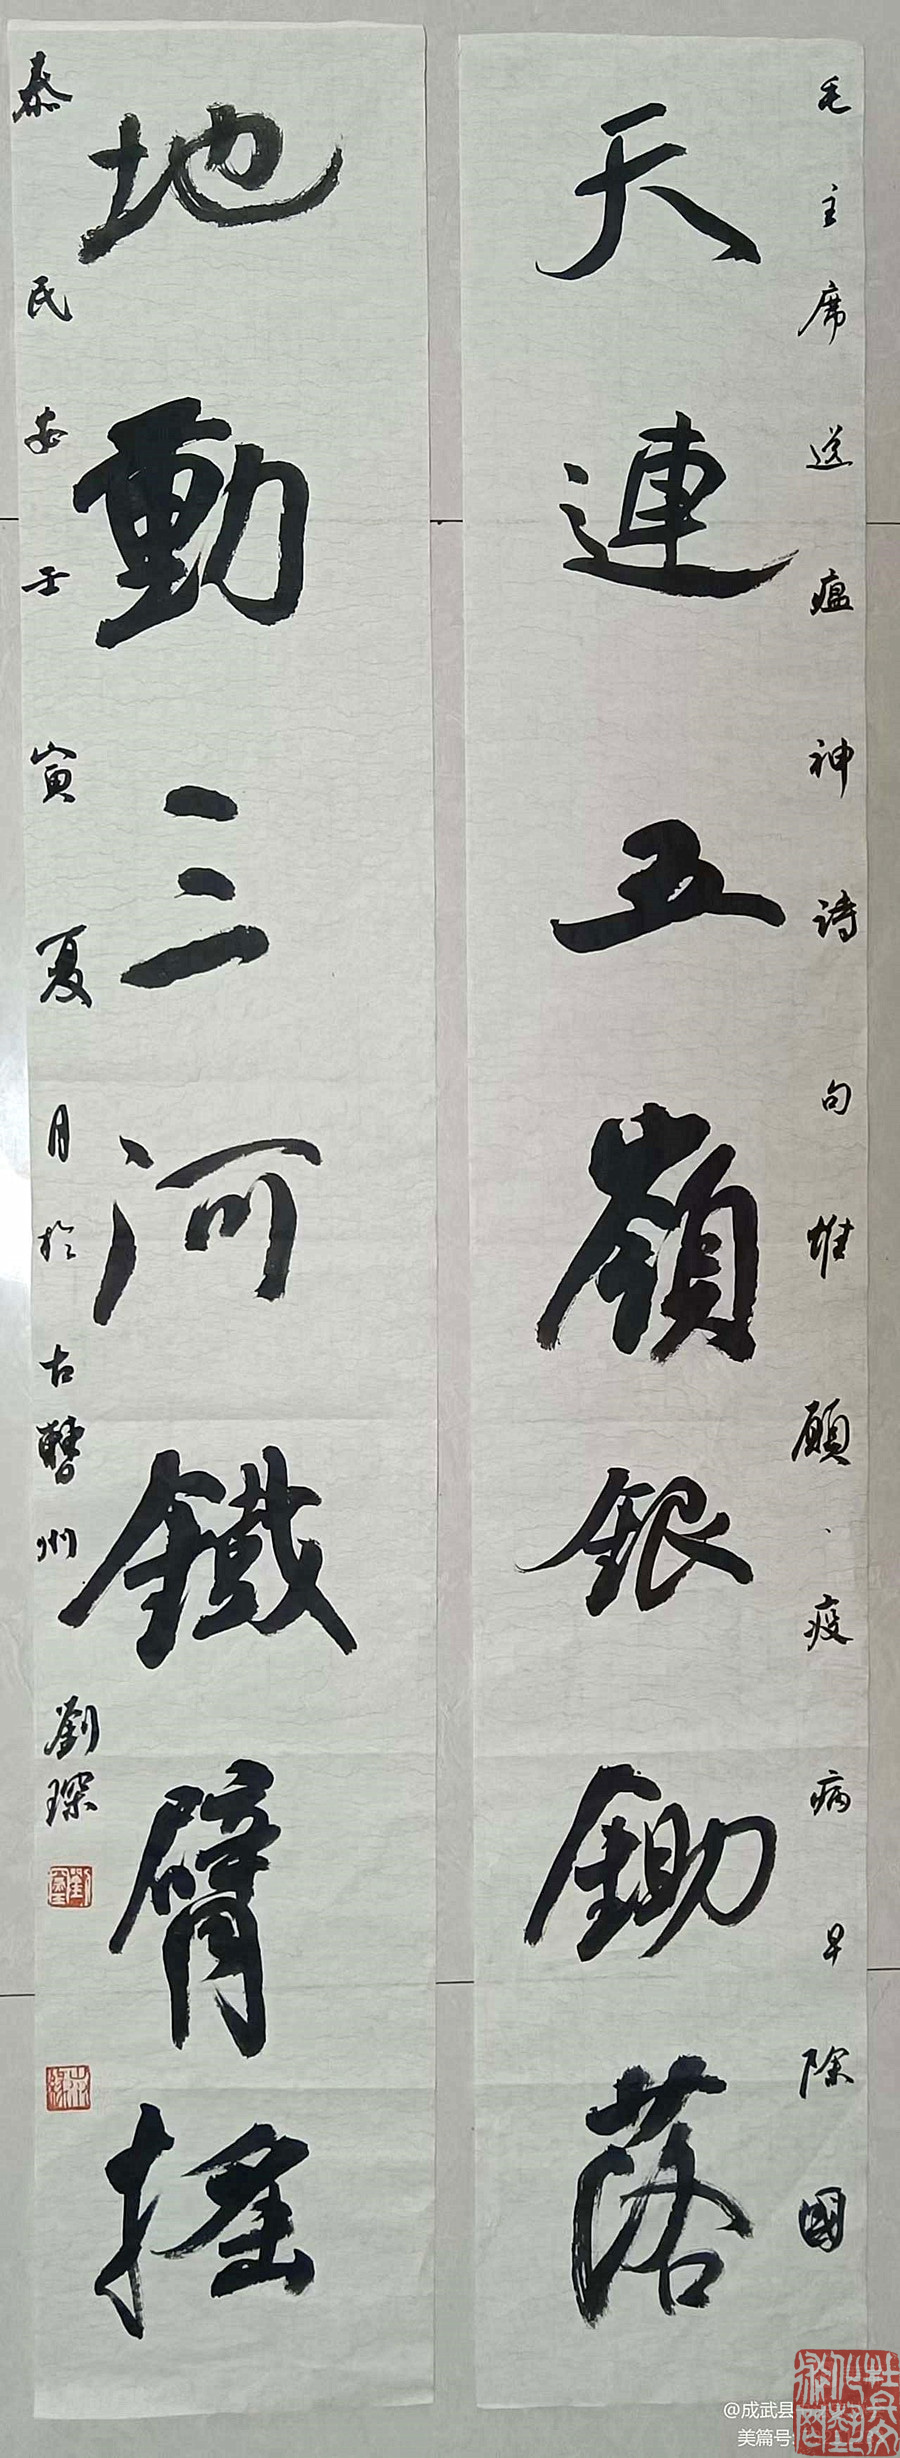 毛主席送瘟神詩句惟願疫病早除國
天連五嶺銀鋤落
地動三河鐵臂搖
泰民安壬寅夏月於古曹州劉琛
@成武县
美篇号: